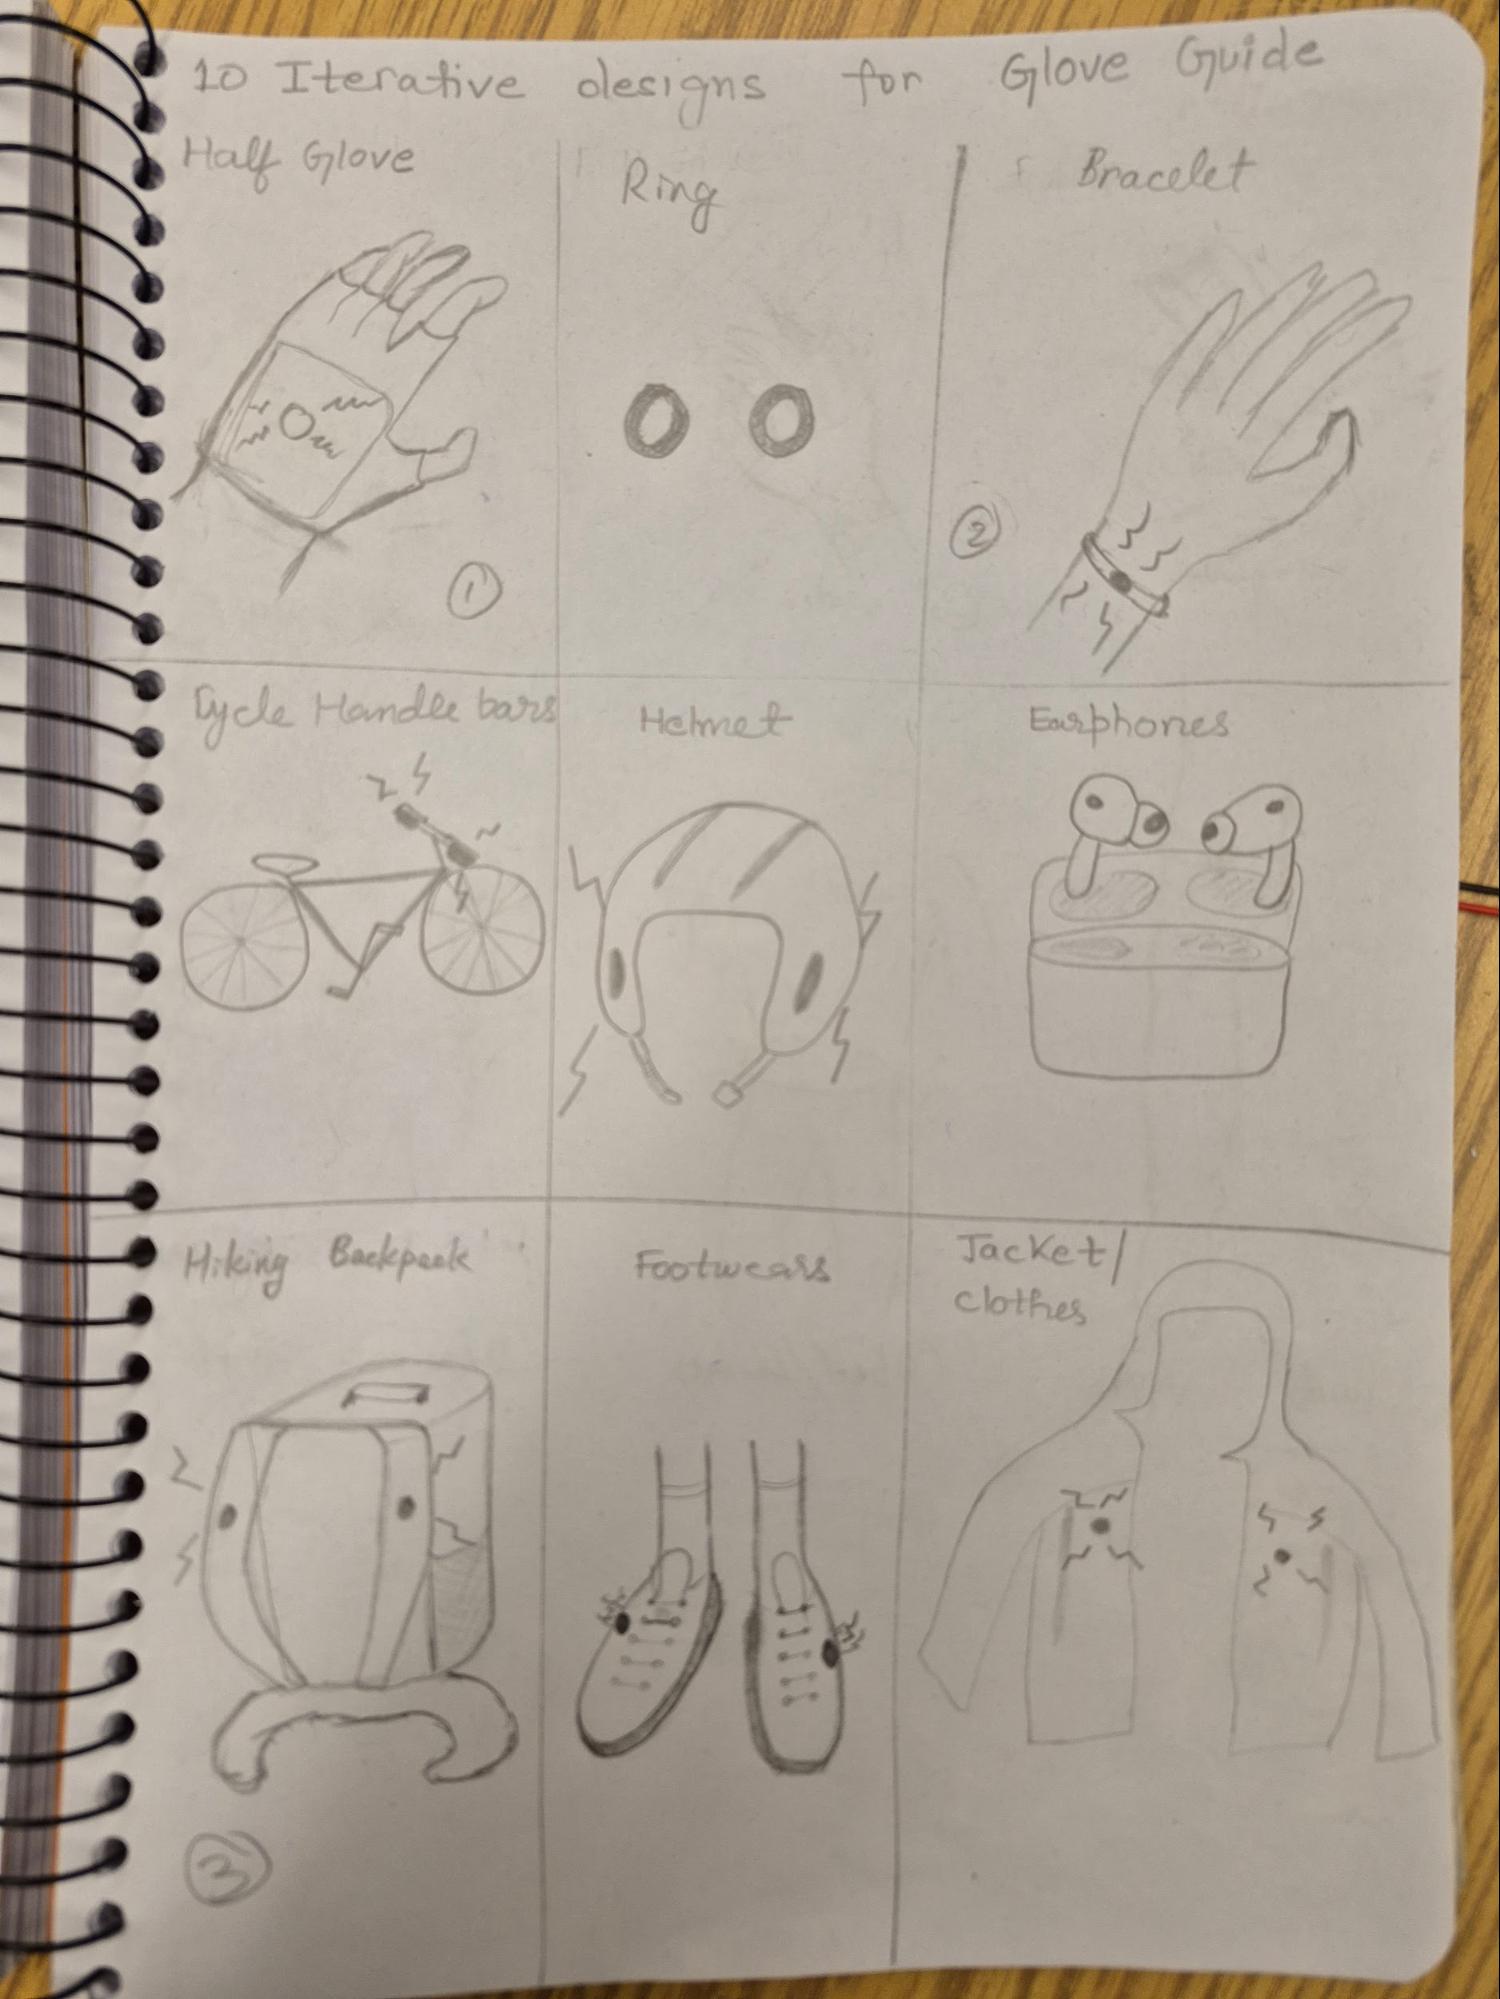 10 Iterative designs for Glove Guide
Half Glove
Ring
Bracelet
1
2
Cycle Handle bars
Helmet
Earphones
Hiking Backpack
Footwears
Jacket/
clothes
3